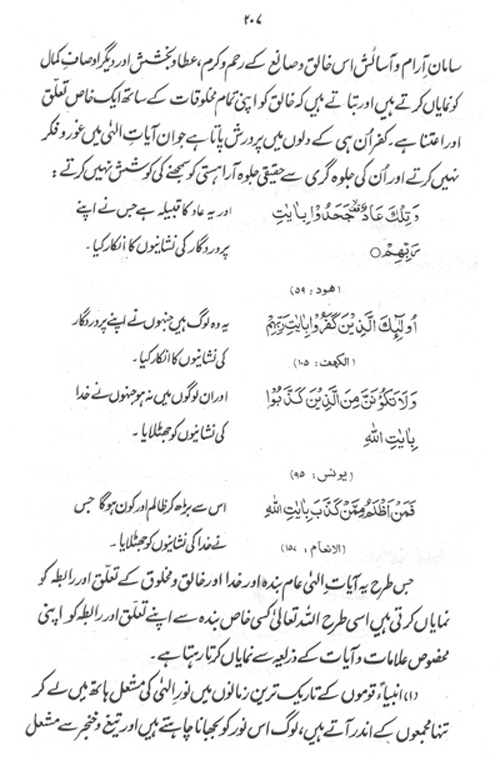 ۲۰۷
سامان آرام و آسائش اس خالق و صانع کے رحم و کرم، عطا و بخشش اور دیگر اوصافِ کمال
کو نمایاں کرتے ہیں اور بتاتے ہیں کہ خالق کو اپنی تمام مخلوقات کے ساتھ ایک خاص تعلّق
اور اعتنا ہے، کفر اُن ہی کے دلوں میں پرورش پاتا ہے جو ان آیاتِ الٰہی میں غور و فکر
نہیں کرتے اور اُن کی جلوہ گری سے حقیقی جلوہ آرا ہستی کو سمجھنے کی کوشش نہیں کرتے :
وَتِلْكَ عَادٌ جَحَدُوْا بِاٰیٰتِ
رَبِّهِمْ○
(ھود : ۵۹)
اور یہ عاد کا قبیلہ ہے جس نے اپنے
پروردگار کی نشانیوں کا انکار کیا۔
اُولٰٓئِكَ الَّذِيْنَ كَفَرُوْا بِاٰیٰتِ رَبِّهِمْ
(الکھف : ۱۰۵)
یہ وہ لوگ ہیں جنہوں نے اپنے پروردگار
کی نشانیوں کا انکار کیا۔
وَلَا تَكُوْنَنَّ مِنَ الَّذِيْنَ كَذَّبُوْا
بِاٰیٰتِ اللّٰهِ
(یونس : ۹۵)
اور ان لوگوں میں نہ ہو جنہوں نے خدا
کی نشانیوں کو جھٹلایا۔
فَمَنْ اَظْلَمُ مِمَّنْ كَذَّبَ بِاٰیٰتِ اللّٰهِ
(الانعام : ۱۵۷)
اس سے بڑھ کر ظالم اور کون ہوگا جس
نے خدا کی نشانیوں کو جھٹلایا۔
جس طرح یہ آیاتِ الٰہی عام بندہ اور خدا اور خالق و مخلوق کے تعلّق اور رابطہ کو
نمایاں کرتی ہیں اسی طرح اللہ تعالیٰ کسی خاص بندہ سے اپنے تعلّق اور رابطہ کو اپنی
مخصوص علامات و آیات کے ذریعہ سے نمایاں کرتا رہتا ہے۔
(۱) انبیاءؑ قوموں کے تاریک ترین زمانوں میں نورِ الٰہی کی مشعل ہاتھ میں لے کر
تنہا مجمعوں کے اندر آتے ہیں، لوگ اس نور کو بجھانا چاہتے ہیں اور تیغ و خنجر سے مشعل